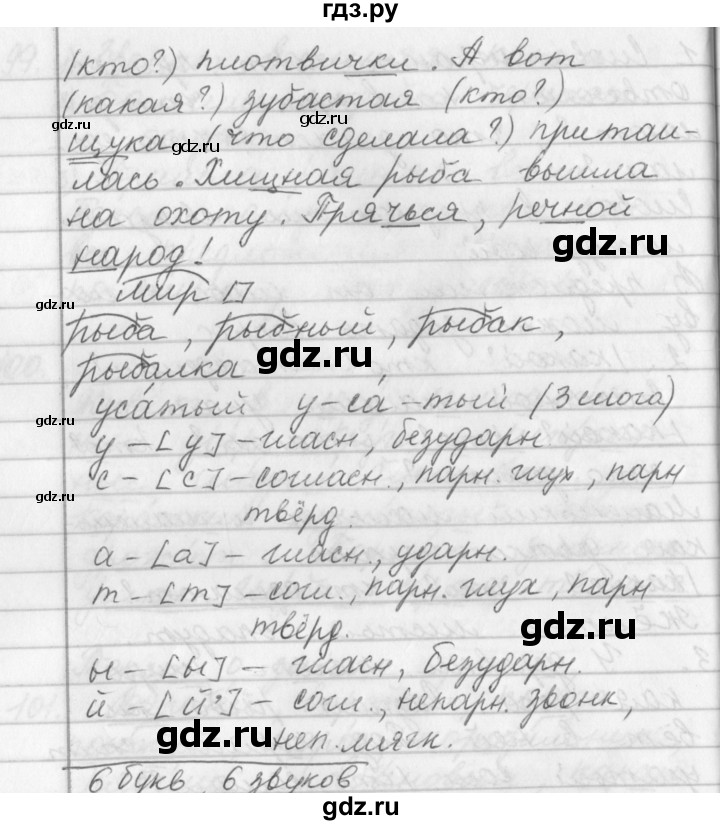 гдз.ру
(кто?) плотвички. А вот
(какая?) зубастая (кто?)
gdz.ru
gdz.ru
щука (что сделала?) притаи-
gdz.ru
gdz.ru
лась. Хищная рыба вышла
на охоту. Прячься, речной
gdz.ru
народ!
мир
gdz.ru
рыба, рыбный, рыбак,
gdz.ru
рыбалка
gdz.ru
уса́тый у-са́-тый (3 слога)
у – [у] – гласн, безударн
с – [с] – согласн., парн. глух, парн
gdz.ru
твёрд.
а – [а] – гласн., ударн.
т – [т] – согл., парн. глух, парн
gdz.ru
твёрд.
gdz.ru
ы – [ы] – гласн, безударн.
й – [й'] – согл., непарн. звонк,
gdz.ru
неп. мягк.
gdz.ru
6 букв, 6 звуков
gdz.ru